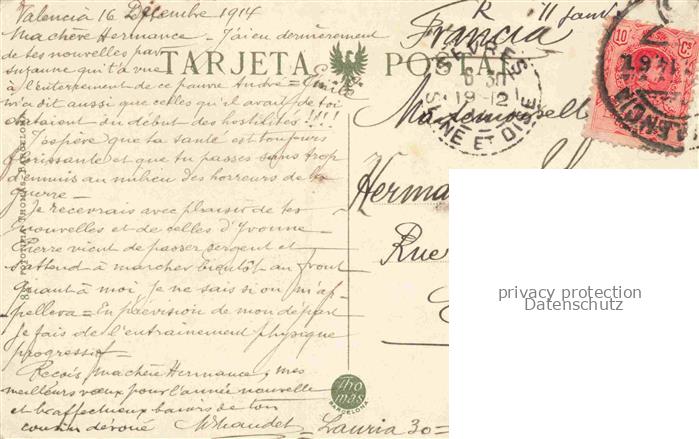 Valencia 16 Décembre 1914
Ma chère Hermance - J'ai eu dernièrement
de tes nouvelles par
Suzanne qui t'a vue
à l'enterrement de ce pauvre André = Emile
m'a dit aussi que celles qu'il avait de toi
dataient du début des hostilités !!!!
J'espère que ta santé est toujours
florissante et que tu passes sans trop
d'ennuis au milieu des horreurs de la
guerre -
Je recevrais avec plaisir de tes
nouvelles et de celles d'Yvonne -
Pierre vient de passer sergent et
s'attend à marcher bientôt au front
Quant à moi je ne sais si on m'ap-
pellera = En prévision de mon départ
je fais de l'entrainement physique
progressif -
Reçois, ma chère Hermance, mes
meilleurs vœux pour l'année nouvelle
et bons affectueux baisers de ton
cousin dévoué
Lauria 30 =
TARJETA POSTAL
FOTOTIPIA THOMAS, BARCELONA
Thomas
BARCELONA
Francia
Mademoiselle
Herma
Rue
SEVRES
8 30
19-12
SEINE ET OISE
10 Cs
VALENCIA
privacy protection
Datenschutz